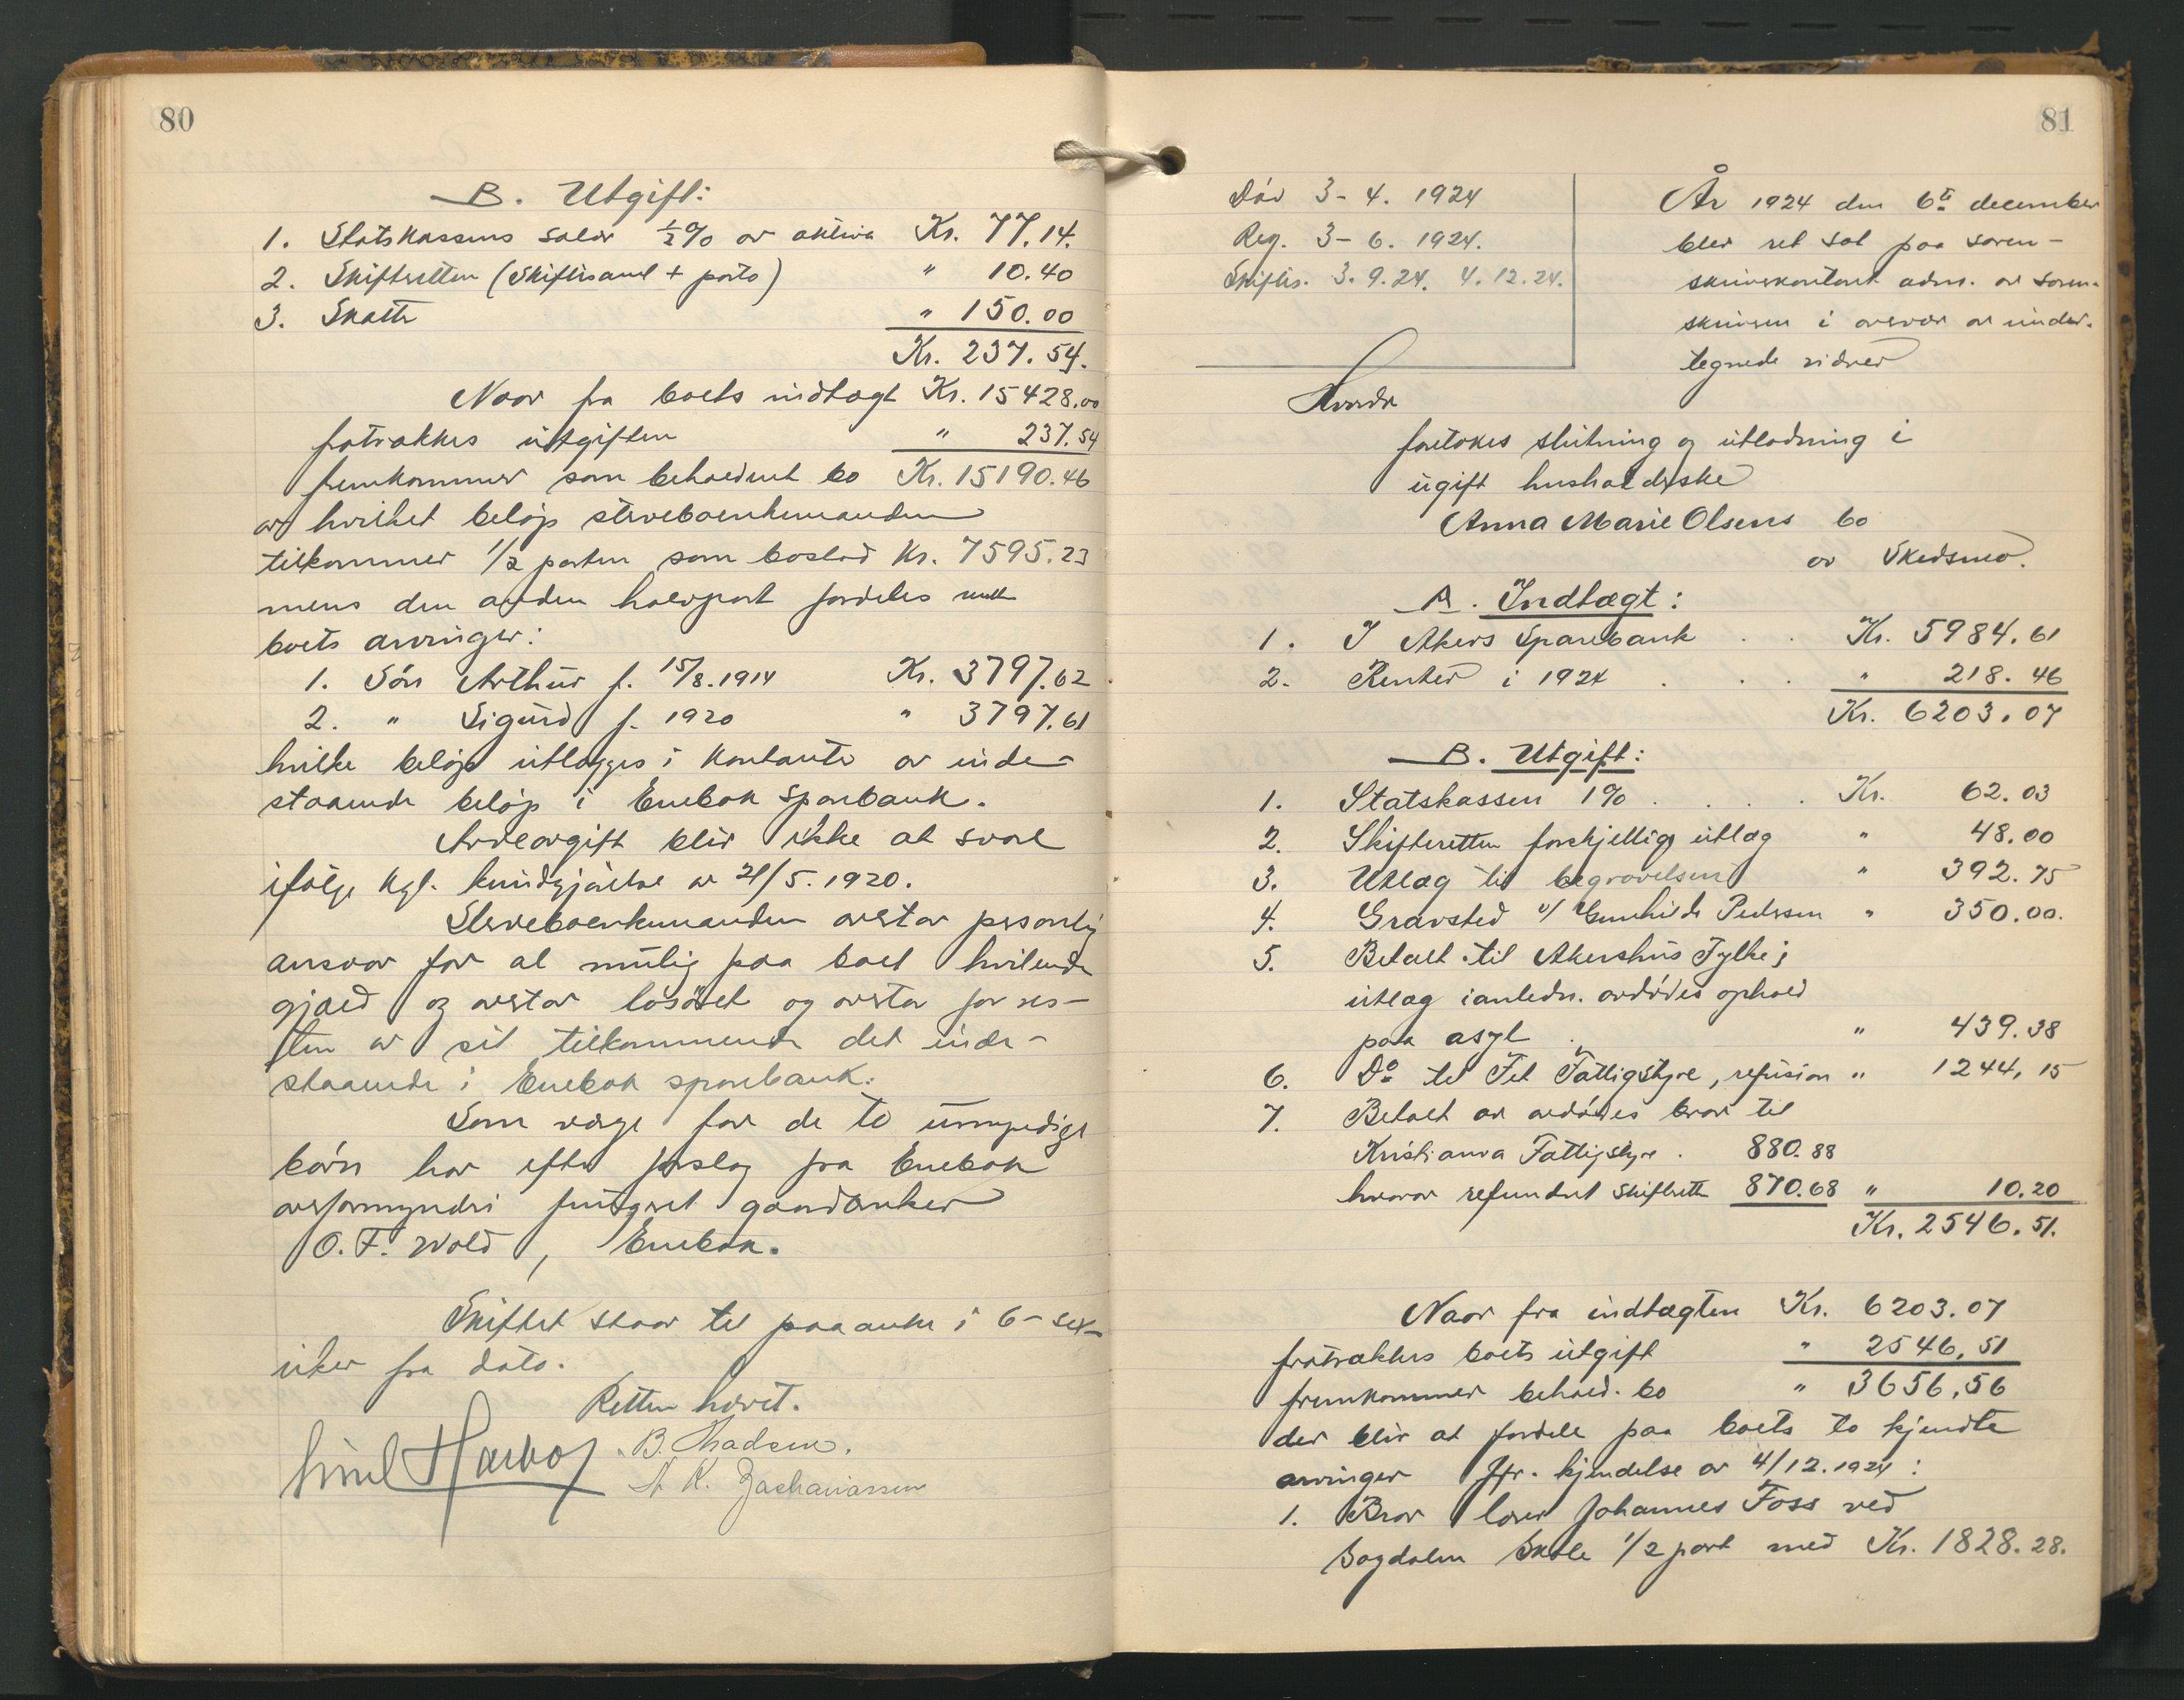 80
B. Utgift:
1. Statskassens salær ½% av aktiva Kr. 77.14.
2. Skifteretten (Skiftesaml + porto) " 10.40
3. Skatter " 150.00
Kr. 237.54.
Naar fra boets indtægt Kr. 15428.00
fratrækkes utgiften " 237.54
fremkommer som beholdent bo Kr. 15190.46
av hvilket beløp sterveboenkemanden
tilkommer 1/2 parten som boslod Kr. 7595.23
mens den anden halvpart fordeles mell
boets arvinger:
1. Søn Arthur f. 15/8.1914 Kr. 3797.62
2. " Sigurd f. 1920 " 3797.61
hvilke beløp utlægges i kontanter av inde-
staaende beløp i Enebak Sparebank.
Arveavgift blir ikke at svare
ifølge kgl. kundgjørelse av 21/5.1920.
Sterveboenkemanden overtar personlig
ansvar for al mulig paa boet hvilende
gjæld og overtar løsøret og overtar for res-
ten av sit tilkommende det inde-
staaende i Enebak sparebank.
Som verge for de to umyndige
børn har efter forslag fra Enebak
overformynderi fungeret gaardbruker
O. F. Wold, Enebak.
Skiftet staar til paaanke i 6-sex-
uker fra dato.
Retten hævet.
Emil Harboe B. Madsen.
A. K. Zachariassen
81
Død 3-4. 1924
Reg. 3-6. 1924.
Skiftes. 3.9.24. 4.12.24.
År 1924 den 6te december
blev ret sat paa soren-
skriverkontoret adm. av soren-
skriveren i overvær av under-
tegnede vidner
Hvorda
foretokes slutning og utlodning i
ugift husholderske
Anna Marie Olsens bo
av Skedsmo.
A. Indtægt:
1. I Akers Sparebank . . Kr. 5984.61
2. Renter i 1924 . . . " 218.46
Kr. 6203.07
B. Utgift:
1. Statskassen 1% . . . . Kr. 62.03
2. Skifteretten forskjellige utlæg " 48.00
3. Utlæg til begravelsen " 392.75
4. Gravsted v/ Gunhilde Pedersen " 350.00.
5. Betalt til Akershus Fylke;
utlæg i anledn. avdødes ophold
paa asyl . " 439.38
6. Do til Fet Fattigstyre, refusion " 1244,15
7. Betalt av avdødes bror til
Kristiania Fattigstyre . 880.88
hvorav refundert skifteretten 870.68 " 10.20
Kr. 2546.51.
Naar fra indtægten Kr. 6203.07
fratrækkes boets utgift " 2546,51
fremkommer behold. bo " 3656,56
der blir at fordele paa boets to kjendte
arvinger Jfr. kjendelse av 4/12.1924:
1. Bror lærer Johannes Foss ved
Sagdalen Skole 1/2 part med Kr. 1828.28.